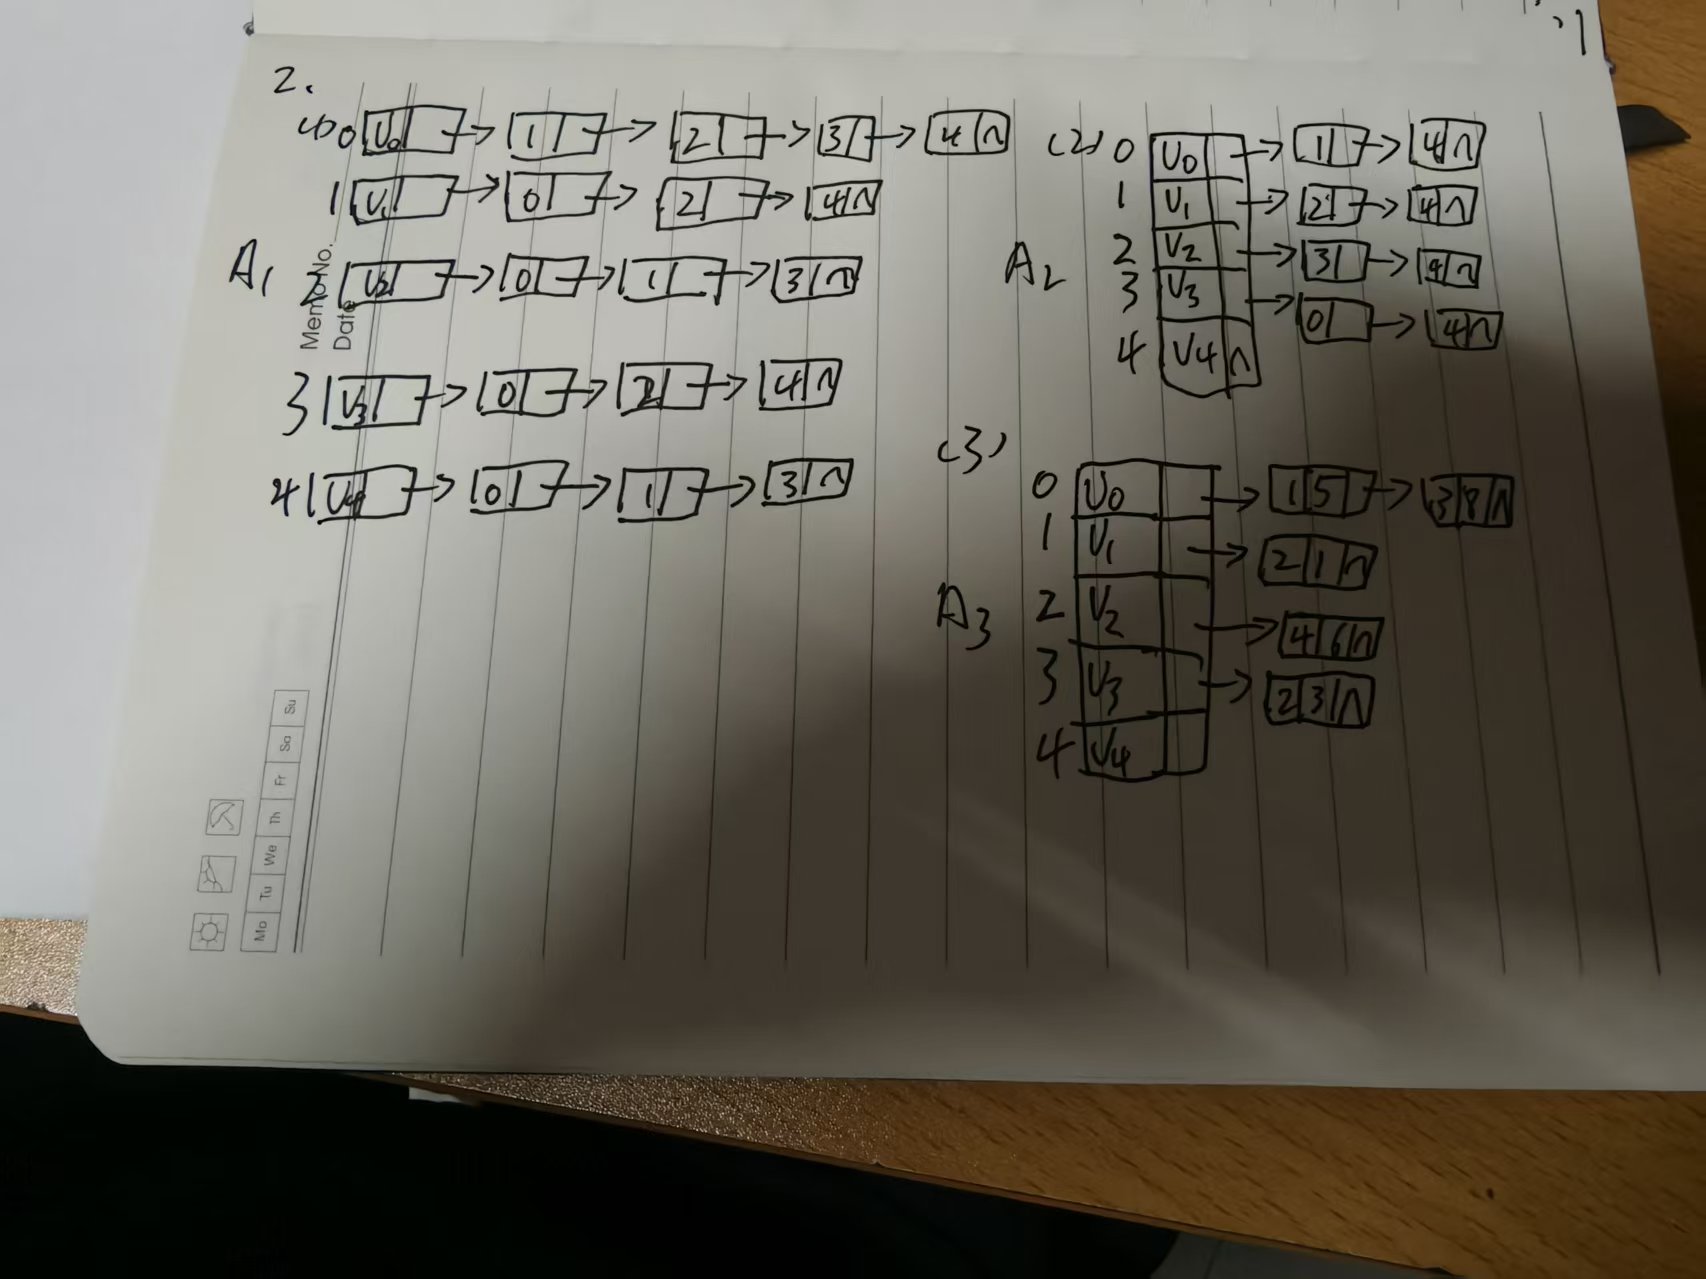 2.
(1) 0 V0 → 1 → 2 → 3 → 4 ∧
1 V1 → 0 → 2 → 4 ∧
A1
2 V2 → 0 → 1 → 3 ∧
3 V3 → 0 → 2 → 4 ∧
4 V4 → 0 → 1 → 3 ∧
Memo No.
Date
(2) 0 V0 → 1 → 4 ∧
1 V1 → 2 → 4 ∧
A2
2 V2 → 3 → 4 ∧
3 V3 → 0 → 4 ∧
4 V4 ∧
(3)
0 V0 → 1 5 → 3 8 ∧
1 V1 → 2 1 ∧
A3
2 V2 → 4 6 ∧
3 V3 → 2 3 ∧
4 V4
Mo Tu We Th Fr Sa Su